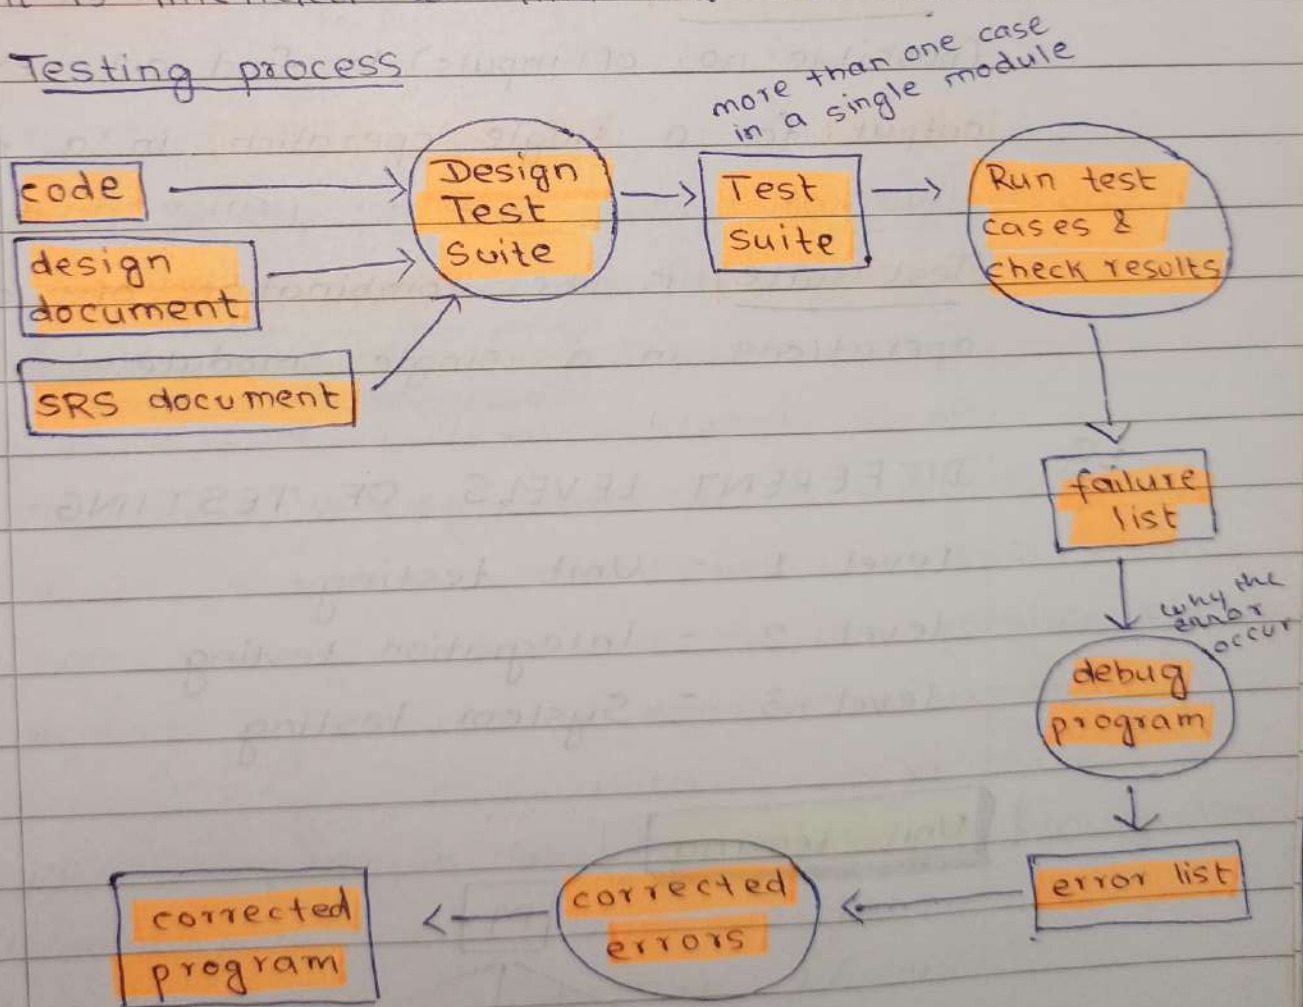 Testing process
more than one case
in a single module
code
design
document
SRS document
Design
Test
Suite
Test
Suite
Run test
cases &
check results
failure
list
why the
error
occur
debug
program
error list
corrected
errors
corrected
program